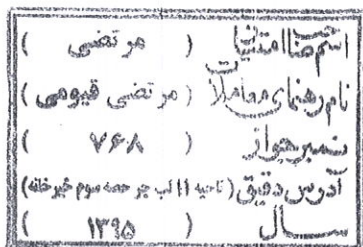 اسم صاحب امتیاز ( مرتضی )
نام رهنمای معاملات ( مرتضی قیومی )
نمبر جواز ( ۷۶۸ )
آدرس دقیق ( ناحیه 11 لب جر حصه سوم خیرخانه )
ســـال ( ۱۳۹۵ )